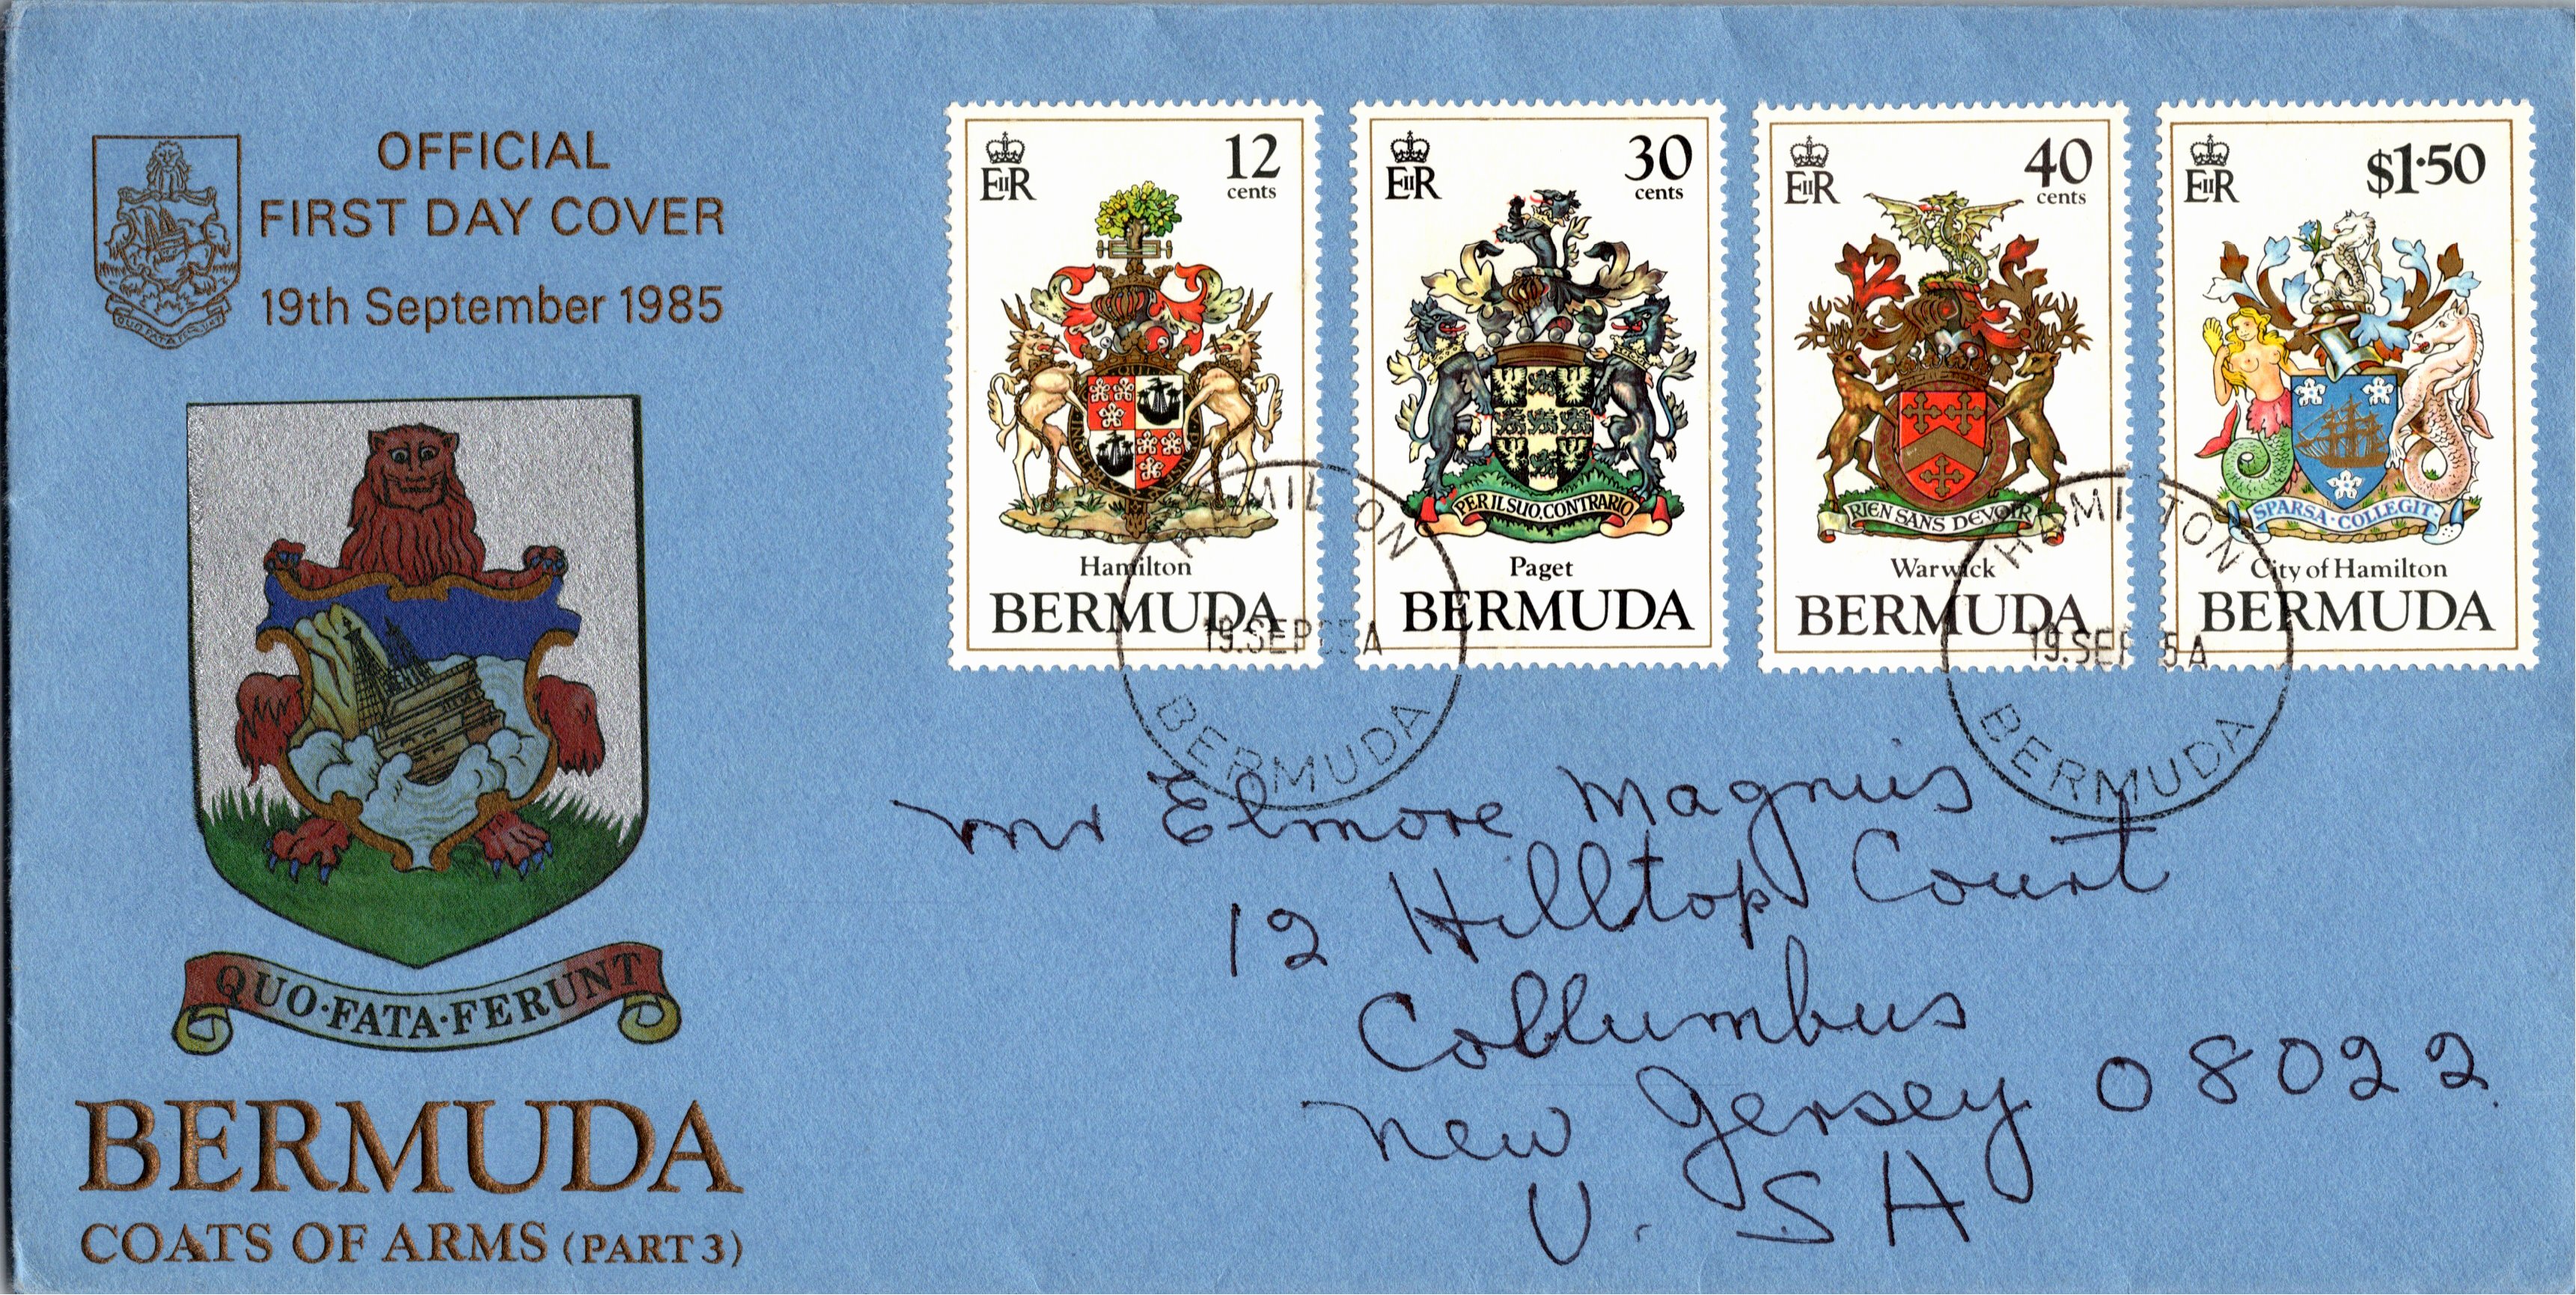 OFFICIAL
FIRST DAY COVER
19th September 1985
QUO FATA FERUNT
QUO·FATA·FERUNT
BERMUDA
COATS OF ARMS (PART 3)
EIIR
12
cents
Hamilton
BERMUDA
EIIR
30
cents
PER IL SUO CONTRARIO
Paget
BERMUDA
EIIR
40
cents
RIEN SANS DEVOIR
Warwick
BERMUDA
EIIR
$1·50
SPARSA·COLLEGIT·
City of Hamilton
BERMUDA
HAMILTON
19.SEP 85A
BERMUDA
HAMILTON
19.SEP 5A
BERMUDA
Mr Elmore Magnus
12 Hilltop Court
Collumbus
New Jersey 08022.
U.SA